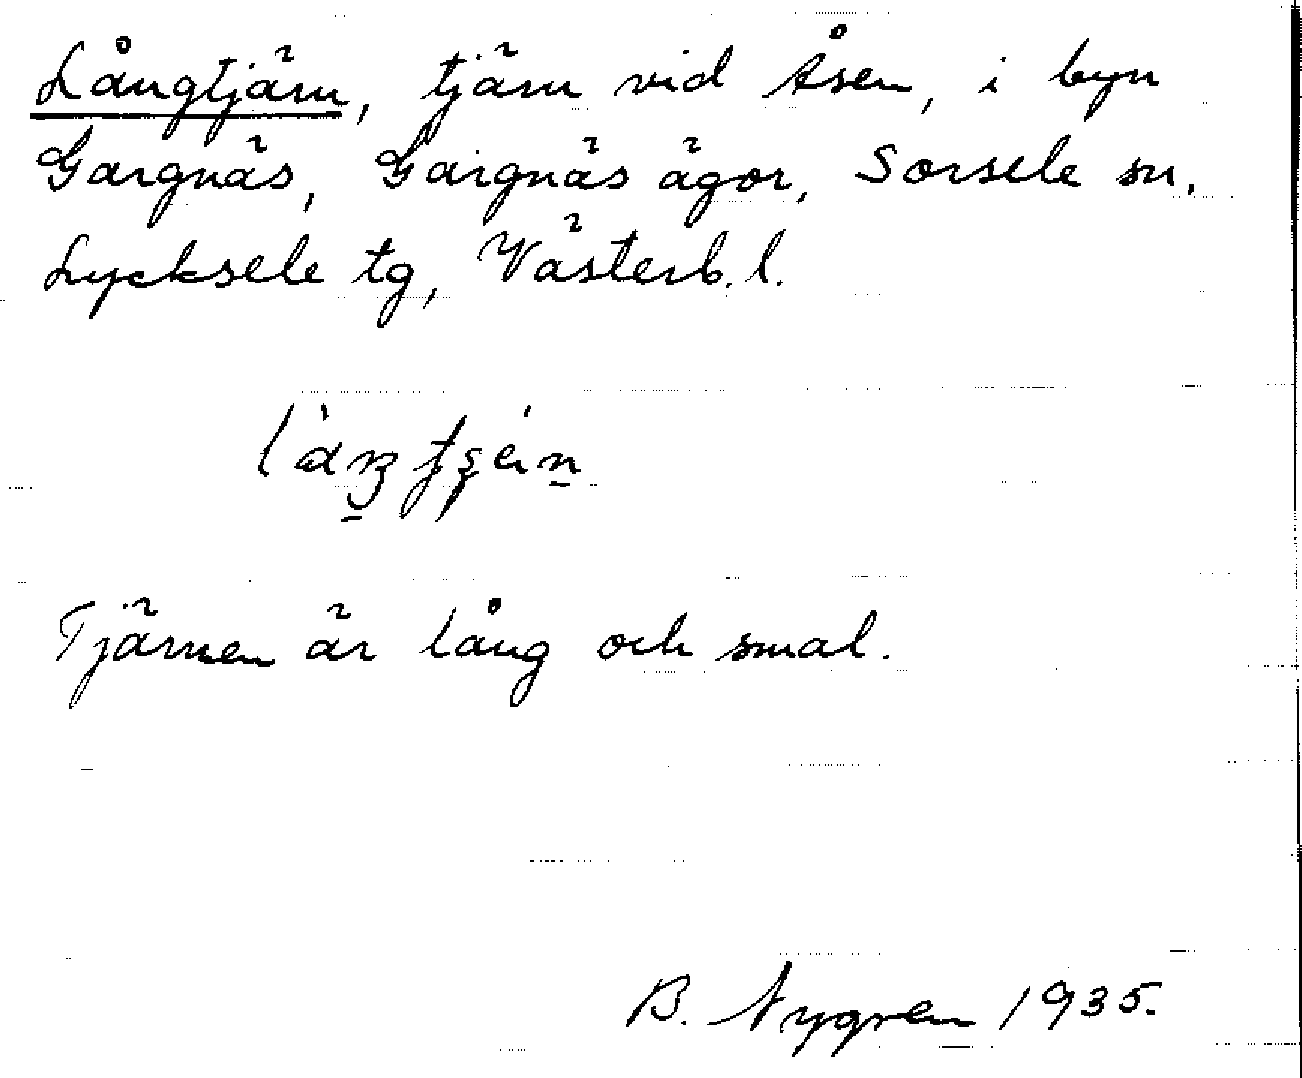 Långtjärn, tjärn vid Åsen, i byn
Gargnäs, Gargnäs ägor, Sorsele sn,
Lycksele tg, Västerb. l.
Tjärnen är lång och smal.
B. Nygren 1935.